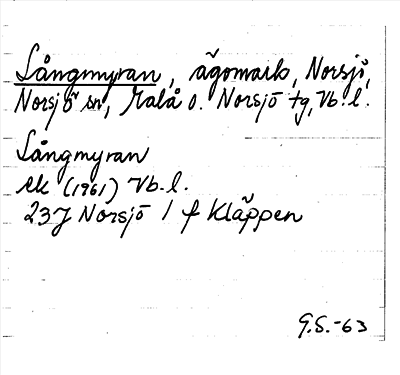 Långmyran, ägomark, Norsjö,
Norsjö sn, Malå o. Norsjö tg, Vb. l.
Långmyran
ek (1961) Vb. l.
23J Norsjö 1 f Kläppen
G.S.-63